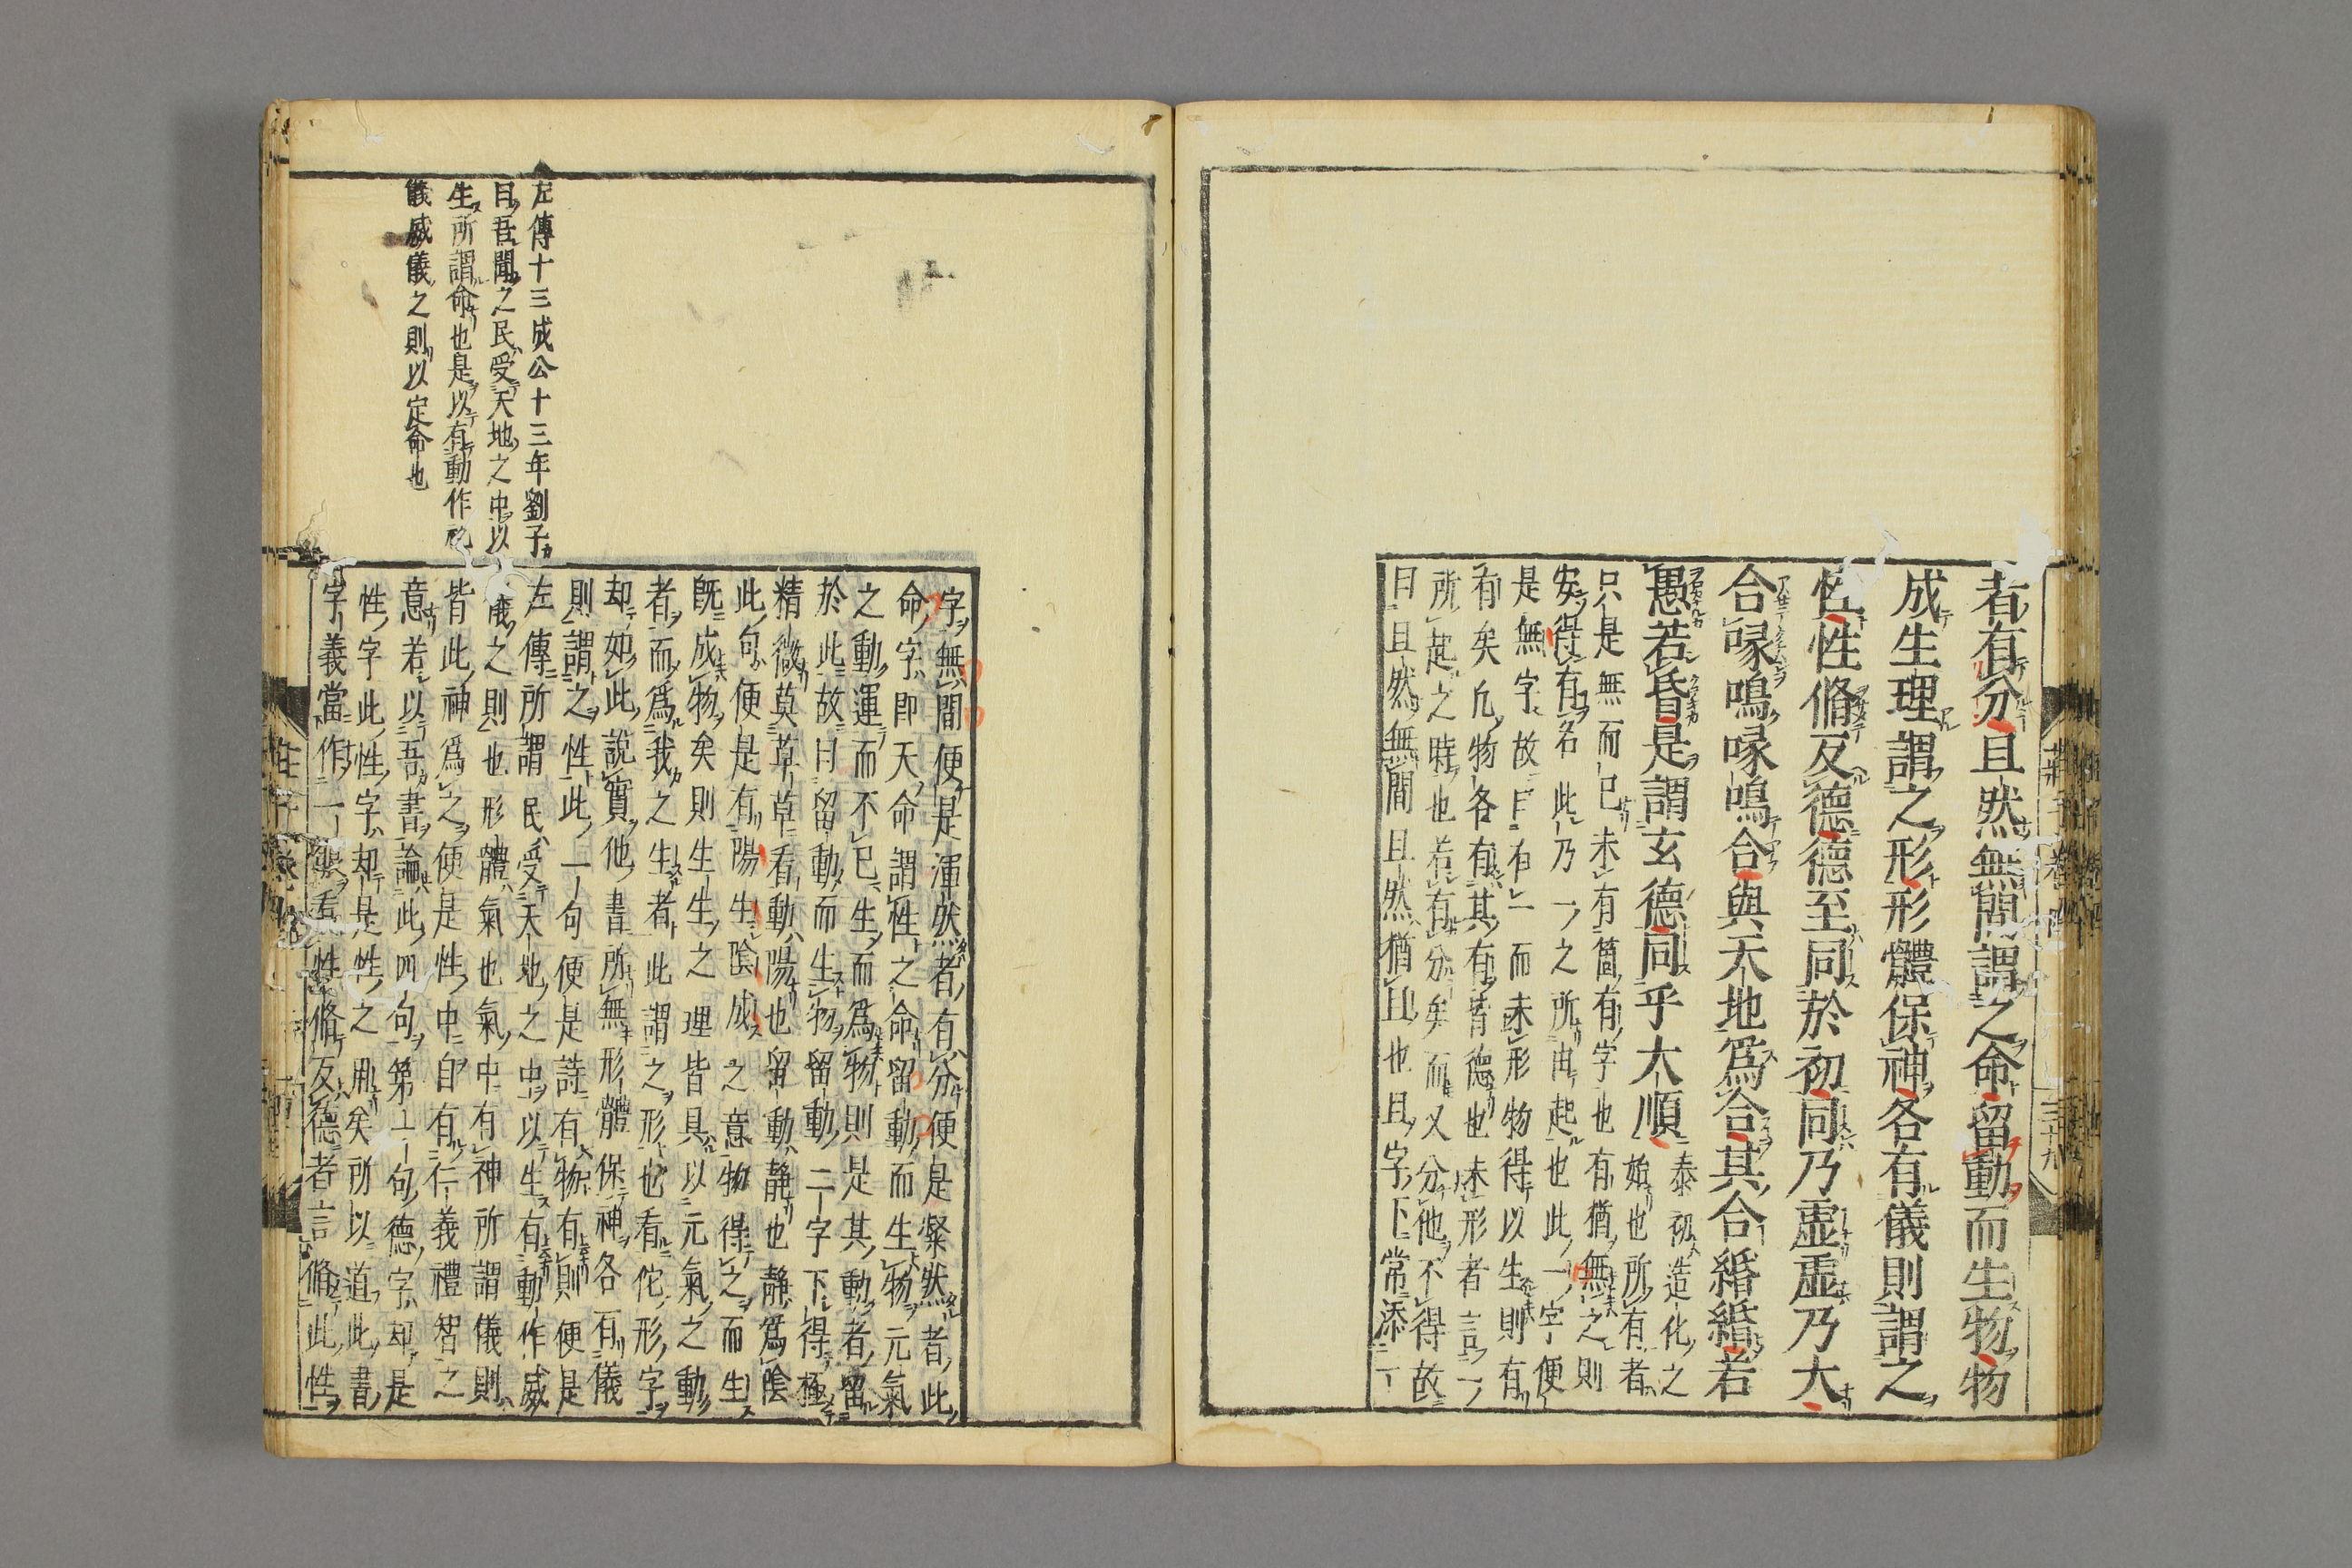 者有分且然無間謂之命留動而生物物
成生理謂之形形體保神各有儀則謂之
性性脩反德德至同於初同乃虚虚乃大
合喙鳴喙鳴合與天地爲合其合緡緡若
愚若昏是謂玄德同乎大順
泰初造化之
始也所有者
只是無而已未有箇有字也有猶無之則
安得有名此乃一之所由起也此一字便
是無字故曰有一而未形物得以生則有
有矣凡物各有其有皆德也未形者言一
所起之時也若有分矣而又分他不得故
曰且然無間且然猶且也且字下常添一
字無間便是渾然者有分便是粲然者此
命字即天命謂性之命留動而生物元氣
之動運而不已生而爲物則是其動者留
於此故曰留動而生物留動二字下得極
精微莫草草看動陽也留動靜也靜爲陰
此句便是有陽生陰成之意物得之而生
既成物矣則生生之理皆具以元氣之動
者而爲我之生者此謂之形也看佗形字
却如此說實他書所無形體保神各有儀
則謂之性此一句便是詩有物有則便是
左傳所謂民受天地之中以生有動作威
儀之則也形體氣也氣中有神所謂儀則
皆此神爲之便是性中自有仁義禮智之
意若以吾書論此四句第一句德字却是
性字此性字却是性之用矣所以道此書
字義當作一眼看性脩反德者言脩此性
左傳十三成公十三年劉子
曰吾聞之民受天地之中以
生所謂命也是以有動作礼
義威儀之則以定命也
莊子 卷四
三十九